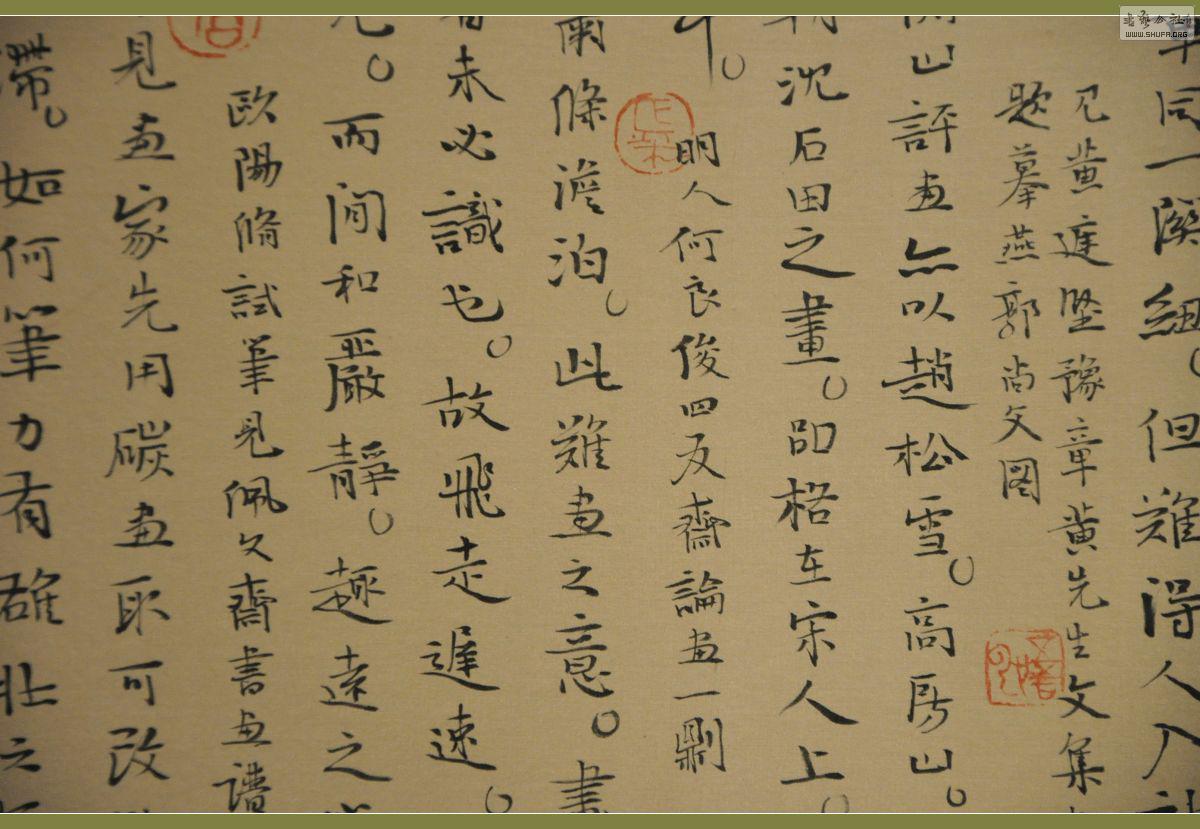 同一關紐。但難得人入
見黄庭堅豫章黄先生文集
題摹燕郭尚父图
山評畫無以趙松雪。高房山。
沈石田之畫。即格在宋人上
明人何良俊四友齋論畫一則
爾條澹泊。此難畫之意。畫
者未必識也。故飛走遲速。
而閒和嚴靜。趣遠之
歐陽脩試筆見佩文齋書畫譜
見畫家先用碳畫取可改
滯。如何筆力有雄壮之
书艺公社
WWW.SHUFA.ORG